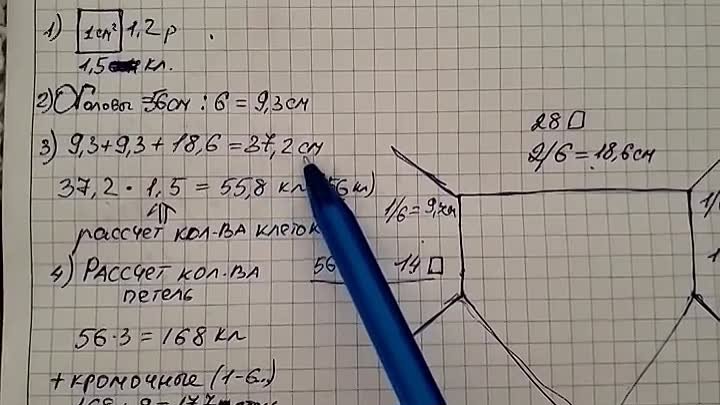 1) 1см² 1,2 р.
1,5 кл.
2) О Головы 56см : 6 = 9,3 см
3) 9,3+9,3+18,6 = 37,2 см
37,2 · 1,5 = 55,8 кл
рассчет кол-ва клеток
4) Рассчет кол-ва
петель
56·3 = 168 кл
+ кромочные
28□
2/6 = 18,6см
1/6 =
56
14□